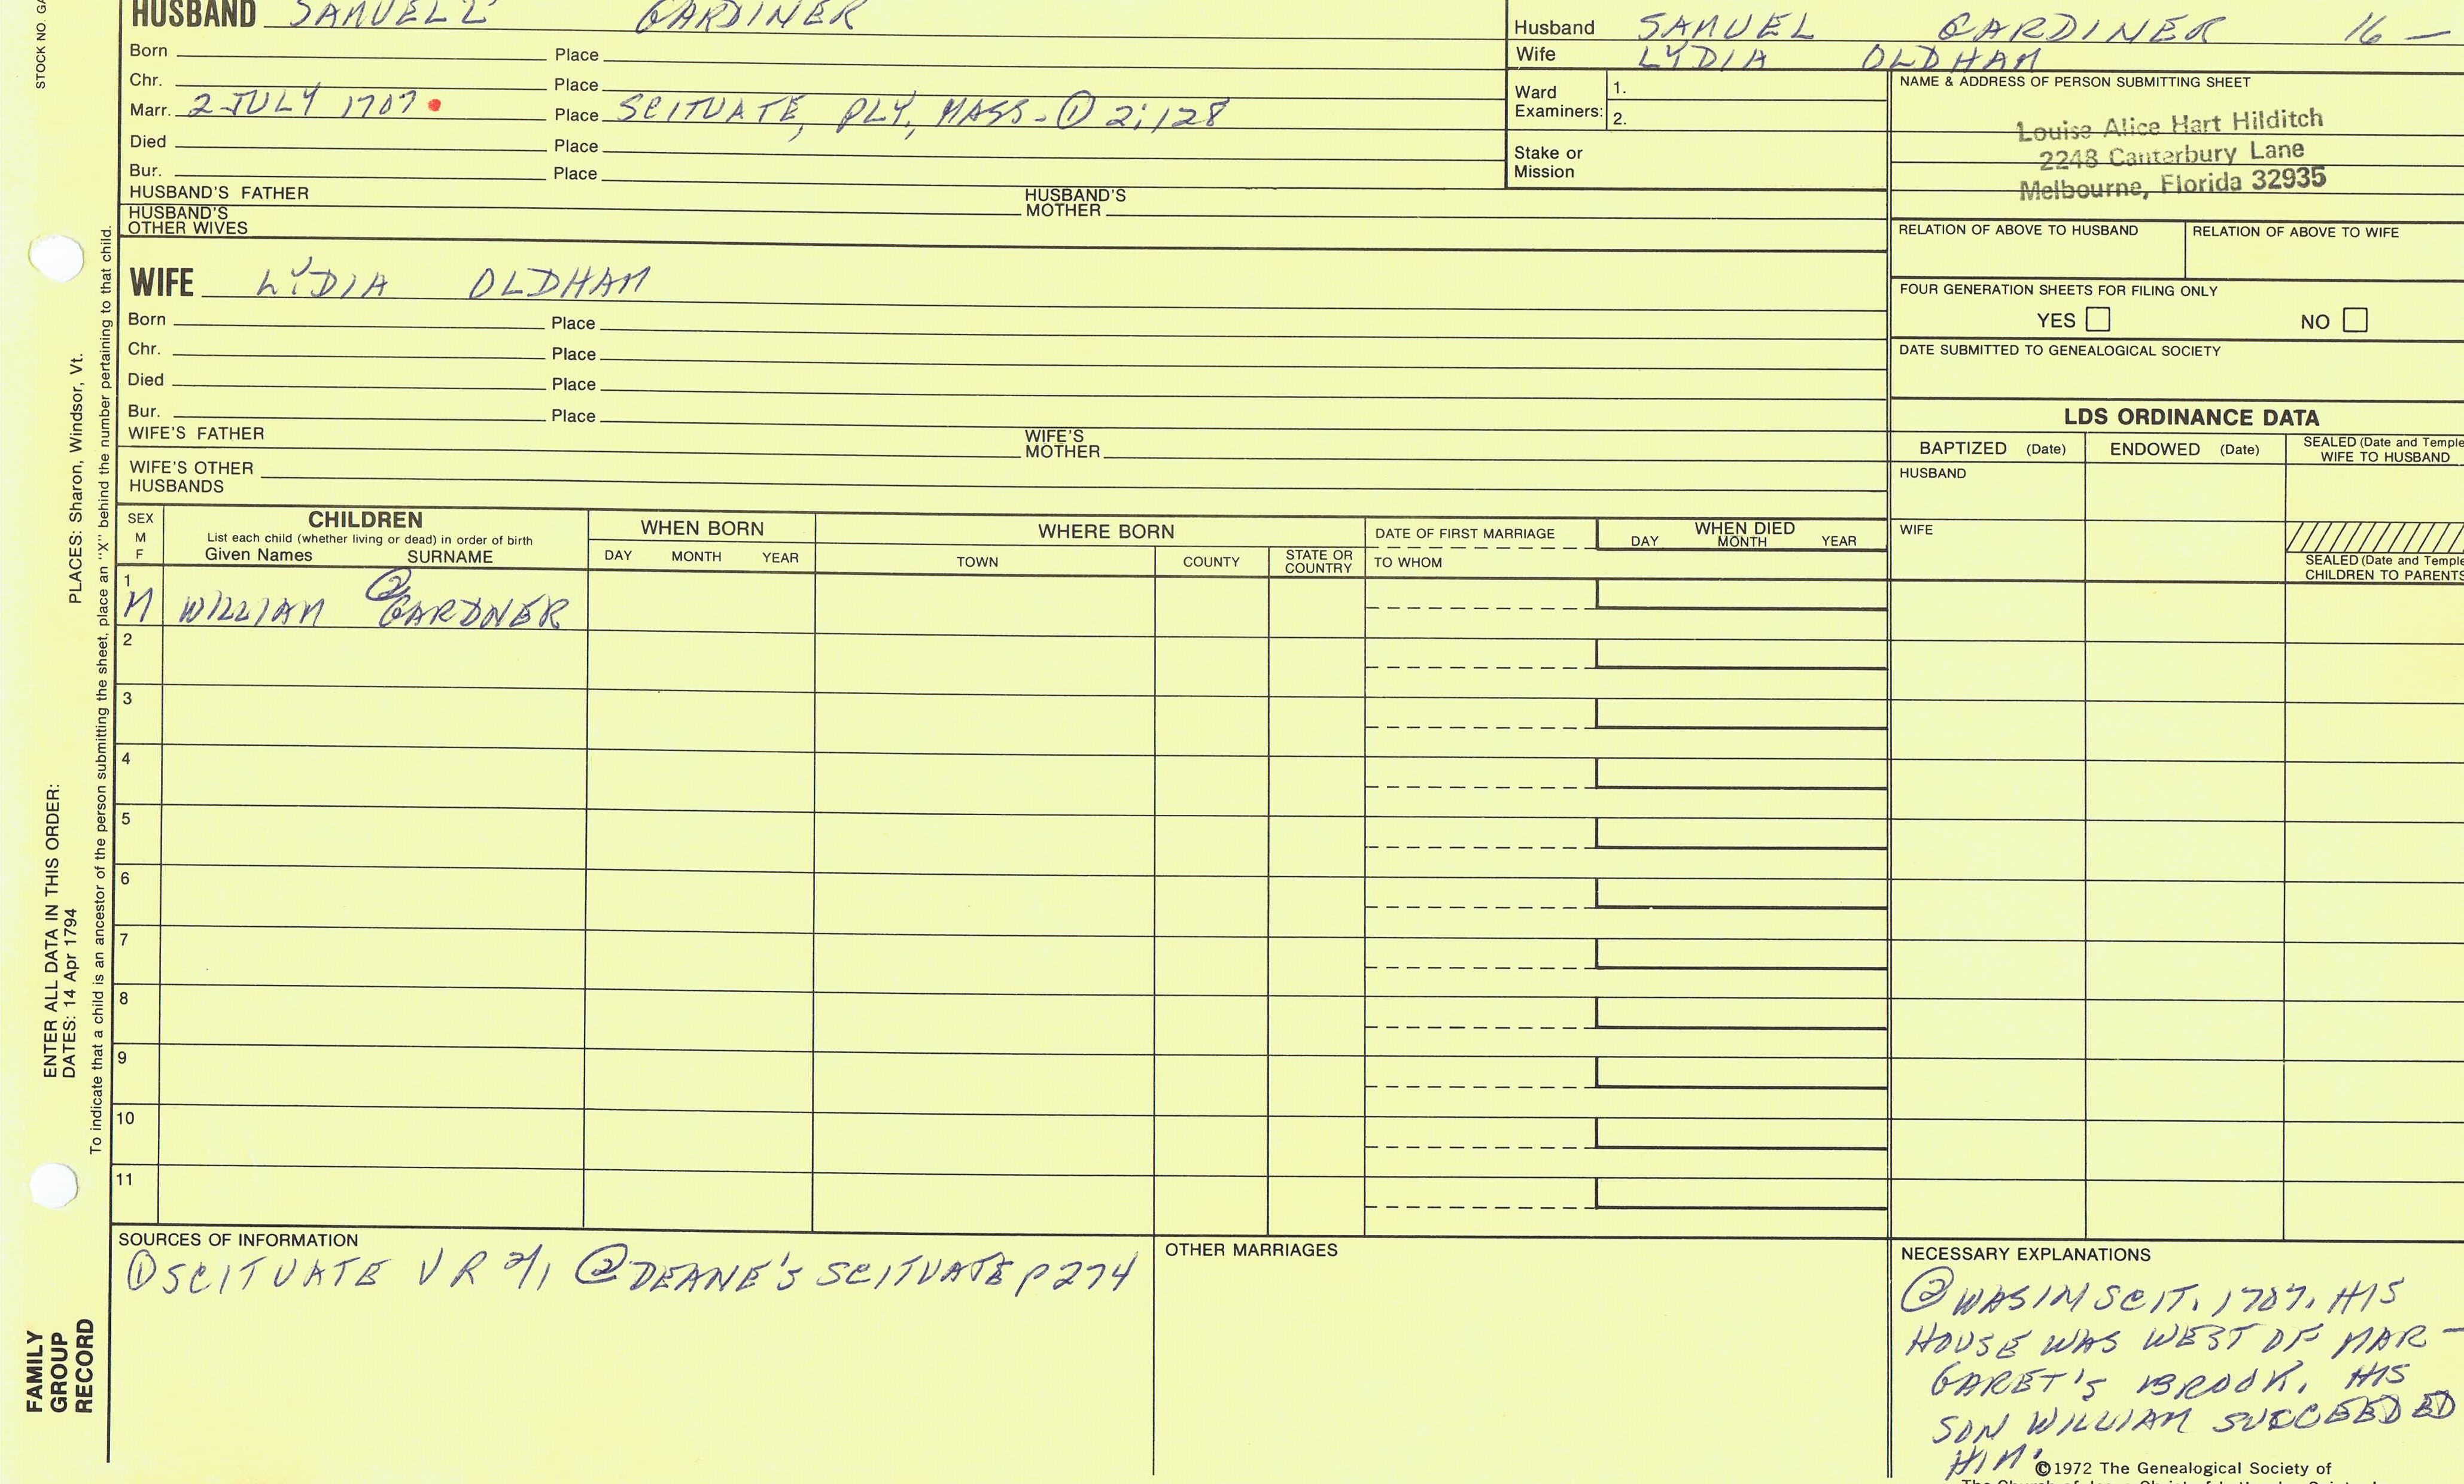 STOCK NO. GA
HUSBAND SAMUELL GARDINER
Born Place
Chr. Place
Marr. 2 JULY 1707 Place SCITUATE, PLY, MASS - ① 2:128
Died Place
Bur. Place
HUSBAND'S FATHER HUSBAND'S MOTHER
HUSBAND'S OTHER WIVES
Husband SAMUEL GARDINER 16 —
Wife LYDIA OLDHAM
Ward Examiners: 1.
2.
Stake or Mission
NAME & ADDRESS OF PERSON SUBMITTING SHEET
Louise Alice Hart Hilditch
2248 Canterbury Lane
Melbourne, Florida 32935
RELATION OF ABOVE TO HUSBAND RELATION OF ABOVE TO WIFE
FOUR GENERATION SHEETS FOR FILING ONLY
YES NO
DATE SUBMITTED TO GENEALOGICAL SOCIETY
WIFE LYDIA OLDHAM
Born Place
Chr. Place
Died Place
Bur. Place
WIFE'S FATHER WIFE'S MOTHER
WIFE'S OTHER HUSBANDS
LDS ORDINANCE DATA
BAPTIZED (Date) ENDOWED (Date) SEALED (Date and Temple
WIFE TO HUSBAND
HUSBAND
WIFE
SEALED (Date and Temple
CHILDREN TO PARENTS
SEX
M
F
CHILDREN
List each child (whether living or dead) in order of birth
Given Names SURNAME
WHEN BORN
DAY MONTH YEAR
WHERE BORN
TOWN COUNTY STATE OR COUNTRY
DATE OF FIRST MARRIAGE
TO WHOM
WHEN DIED
DAY MONTH YEAR
1
M WILLIAM ② GARDNER
2
3
4
5
6
7
8
9
10
11
SOURCES OF INFORMATION
① SCITUATE VR 2/1 ② DEANE'S SCITUATE p 274
OTHER MARRIAGES
NECESSARY EXPLANATIONS
② WAS IN SCIT. 1707. HIS
HOUSE WAS WEST OF MAR-
GARET'S BROOK. HIS
SON WILLIAM SUCCEEDED
HIM.
©1972 The Genealogical Society of
PLACES: Sharon, Windsor, Vt.
ENTER ALL DATA IN THIS ORDER:
DATES: 14 Apr 1794
To indicate that a child is an ancestor of the person submitting the sheet, place an "X" behind the number pertaining to that child.
FAMILY
GROUP
RECORD